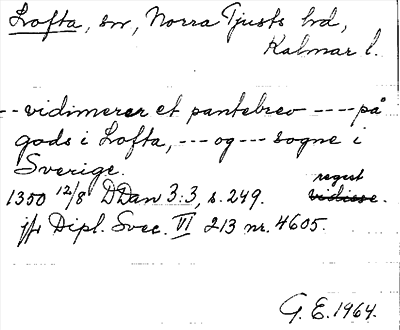 Lofta, sn, Norra Tjusts hd,
Kalmar l.
-- vidimerer et pantebrev ---- på
gods i Lofta, --- og --- sogne i
Sverige.
regest
1350 12/8 DDan 3:3, s. 249. vidisse.
jfr Dipl. Svec. VI 213 nr. 4605.
G. E. 1964.